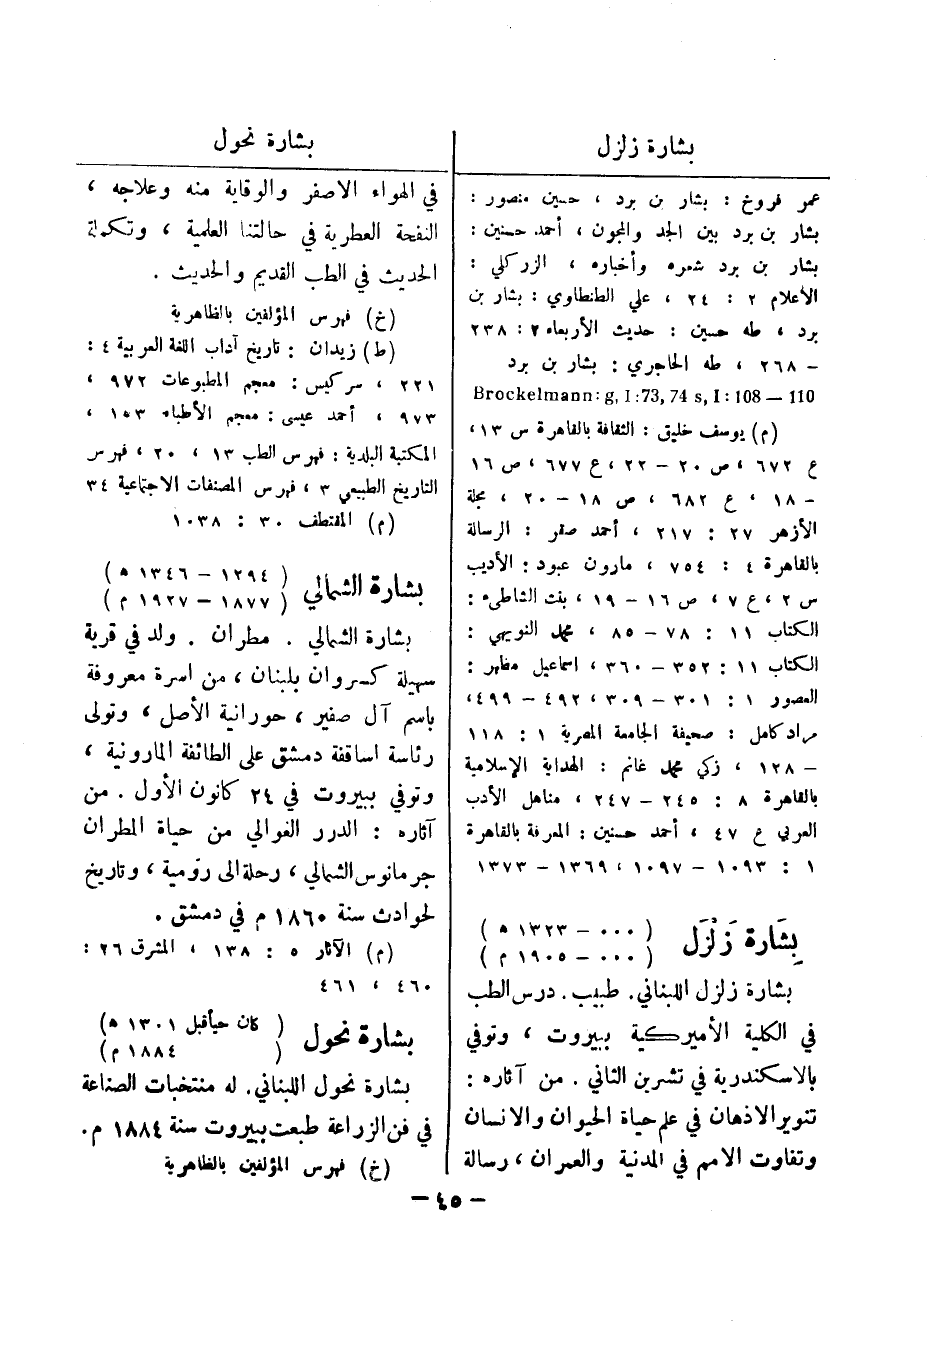 بشارة زلزل
عمر فروخ : بشار بن برد ، حسين منصور :
بشار بن برد بين الجد والمجون ، أحمد حسنين :
بشار بن برد شعره وأخباره ، الزركلي :
الأعلام ٢ : ٢٤ ، علي الطنطاوي : بشار بن
برد ، طه حسين : حديث الأربعاء ٢ : ٢٣٨
– ٢٦٨ ، طه الحاجري : بشار بن برد
Brockelmann: g, I :73, 74 s, I : 108 — 110
(م) يوسف خليق : الثقافة بالقاهرة س ١٣،
ع ٦٧٢ ، ص ٢٠ – ٢٢ ، ع ٦٧٧ ، ص ١٦
– ١٨ ، ع ٦٨٢ ، ص ١٨ – ٢٠ ، مجلة
الأزهر ٢٧ : ٢١٧ ، أحمد صقر : الرسالة
بالقاهرة ٤ : ٧٥٤ ، مارون عبود : الأديب
س ٢ ، ع ٧ ، ص ١٦ – ١٩ ، بنت الشاطىء :
الكتاب ١١ : ٧٨ – ٨٥ ، محمد النويهي :
الكتاب ١١ : ٣٥٢ – ٣٦٠ ، اسماعيل مظهر :
العصور ١ : ٣٠١ – ٣٠٩ ، ٤٩٢ – ٤٩٩ ،
مراد كامل : صحيفة الجامعة المصرية ١ : ١١٨
– ١٢٨ ، زكي محمد غانم : الهداية الإسلامية
بالقاهرة ٨ : ٢٤٥ – ٢٤٧ ، مناهل الأدب
العربي ع ٤٧ ، أحمد حسنين : المعرفة بالقاهرة
١ : ١٠٩٣ – ١٠٩٧ ، ١٣٦٩ – ١٣٧٣
بِشَارة زَلْزَل ( ٠٠٠ – ١٣٢٣ ه )
( ٠٠٠ – ١٩٠٥ م )
بشارة زلزل اللبناني . طبيب . درس الطب
في الكلية الأميركية ببيروت ، وتوفي
بالاسكندرية في تشرين الثاني . من آثاره :
تنوير الاذهان في علم حياة الحيوان والانسان
وتفاوت الامم في المدنية والعمران ، رسالة
بشارة نحول
في الهواء الاصفر والوقاية منه وعلاجه ،
النفحة العطرية في حالتنا العلمية ، وتكملة
الحديث في الطب القديم والحديث .
(خ) فهرس المؤلفين بالظاهرية
(ط) زيدان : تاريخ آداب اللغة العربية ٤ :
٢٢١ ، سركيس : معجم المطبوعات ٩٧٢ ،
٩٧٣ ، أحمد عيسى : معجم الأطباء ١٥٣ ،
المكتبة البلدية : فهرس الطب ١٣ ، ٢٠ ، فهرس
التاريخ الطبيعي ٣ ، فهرس المصنفات الاجتماعية ٣٤
(م) المقتطف ٣٠ : ١٠٣٨
بشارة الشمالي ( ١٢٩٤ – ١٣٤٦ ه )
( ١٨٧٧ – ١٩٢٧ م )
بشارة الشمالي . مطران . ولد في قرية
سهيلة كسروان بلبنان ، من اسرة معروفة
باسم آل صفير ، حورانية الأصل ، وتولى
رئاسة اساقفة دمشق على الطائفة المارونية ،
وتوفي ببيروت في ٢٤ كانون الأول . من
آثاره : الدرر الغوالي من حياة المطران
جرمانوس الشمالي ، رحلة الى رومية ، وتاريخ
لحوادث سنة ١٨٦٠ م في دمشق .
(م) الآثار ٥ : ١٣٨ ، المشرق ٢٦ :
٤٦٠ ، ٤٦١
بشارة نحول ( كان حياً قبل ١٣٠١ ه )
( ١٨٨٤ م )
بشارة نحول اللبناني . له منتخبات الصناعة
في فن الزراعة طبعت ببيروت سنة ١٨٨٤ م .
(خ) فهرس المؤلفين بالظاهرية
– ٤٥ –